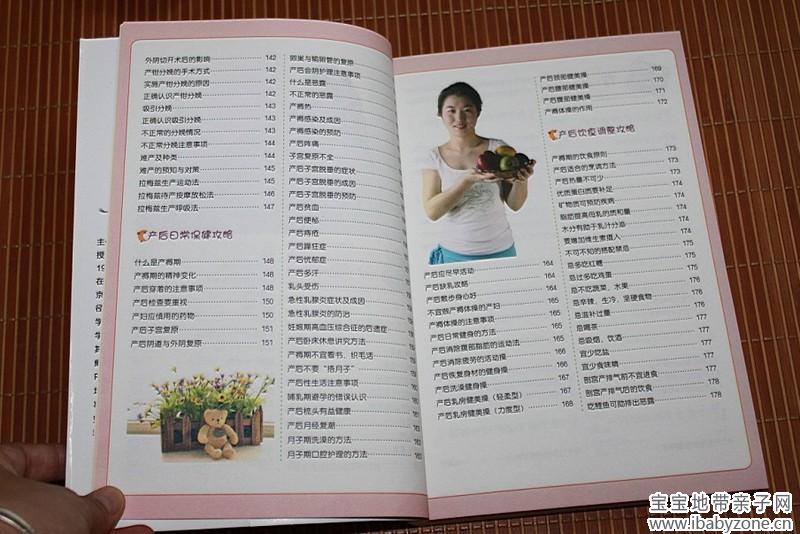 外阴切开术后的影响 142
产钳分娩的手术方式 142
实施产钳分娩的原因 142
正确认识产钳分娩 142
吸引分娩 143
正确认识吸引分娩 143
不正常的分娩情况 143
不正常分娩注意事项 144
难产及种类 144
难产的预知与对策 145
拉梅兹生产运动法 145
拉梅兹待产按摩放松法 146
拉梅兹生产呼吸法 147
产后日常保健攻略
什么是产褥期 148
产褥期的精神变化 148
产后穿着的注意事项 148
产后检查要重视 150
产妇应慎用的药物 150
产后子宫复原 151
产后阴道与外阴复原 151
卵巢与输卵管的复原
产后会阴护理注意事项
什么是恶露
不正常的恶露
产褥热
产褥感染及成因
产褥感染的预防
产后阵痛
子宫复原不全
产后子宫脱垂的症状
产后子宫脱垂的成因
产后子宫脱垂的预防
产后贫血
产后便秘
产后痔疮
产后躁狂症
产后忧郁症
产后多汗
乳头受伤
急性乳腺炎症状及成因
急性乳腺炎的防治
妊娠期高血压综合征的后遗症
产后卧床休息讲究方法
产褥期不宜看书、织毛活
产后不要“捂月子”
产后性生活注意事项
哺乳期避孕的错误认识
产后梳头有益健康
产后月经复潮
月子期洗澡的方法
月子期口腔护理的方法
产后应尽早活动 164
产后缺乳攻略 164
产后散步身心好 164
不宜做产褥体操的产妇 164
产褥体操的注意事项 164
产后日常健身的方法 165
产后消除腹部脂肪的运动法 165
产后消除疲劳的活动操 166
产后恢复身材的健身操 166
产后洗澡健身操 167
产后乳房健美操（轻柔型） 167
产后乳房健美操（力度型） 168
产后颈部健美操 169
产后腰部健美操 170
产后腹部健美操 171
产褥体操的作用 172
产后饮食调整攻略
产褥期的饮食原则 173
产后适合的烹调方法 173
产后热量不可少 173
优质蛋白质要补足 174
矿物质可预防疾病 174
脂肪提高母乳的质和量 174
水分有助于乳汁分泌 174
要增加维生素摄入 174
不可不知的搭配禁忌 175
忌多吃红糖 175
忌过多吃鸡蛋 175
忌不吃蔬菜、水果 176
忌辛辣、生冷、坚硬食物 176
忌滋补过量 176
忌喝茶 177
忌吸烟、饮酒 177
宜少吃盐 177
宜少食味精 177
剖宫产排气前不宜进食 177
剖宫产排气后的饮食 178
吃鲤鱼可助排出恶露 178
宝宝地带亲子网
www.ibabyzone.cn